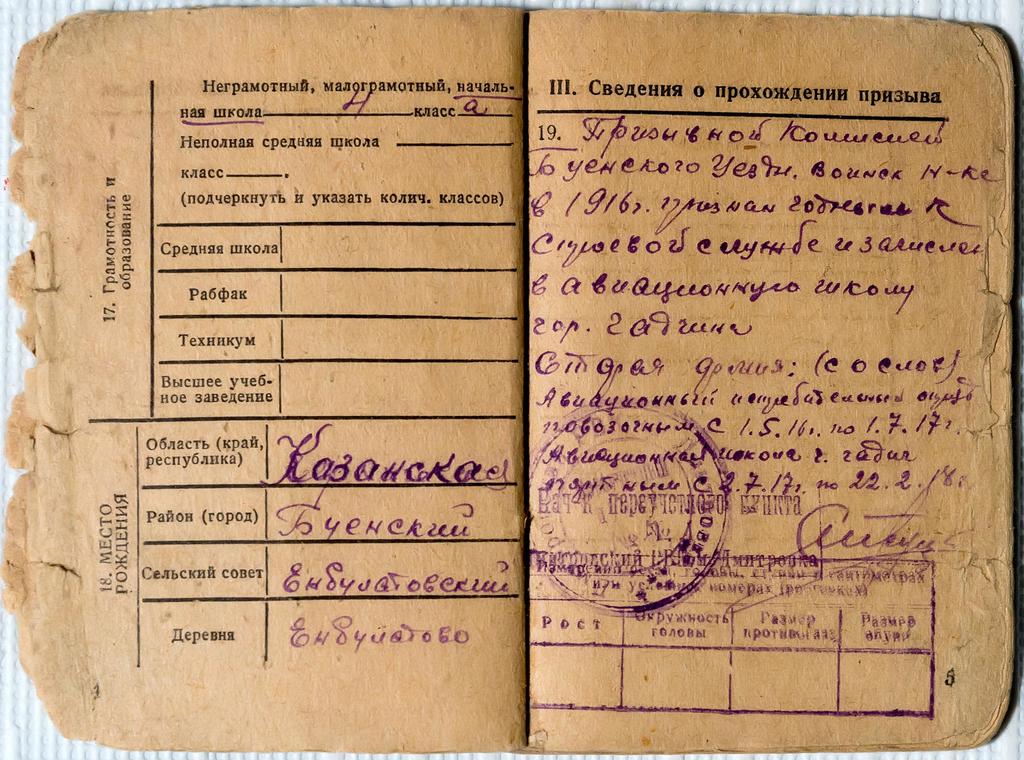 Неграмотный, малограмотный, началь-
ная школа 4 класс а
Неполная средняя школа
класс .
(подчеркнуть и указать колич. классов)
17. Грамотность и
образование
Средняя школа
Рабфак
Техникум
Высшее учеб-
ное заведение
18. МЕСТО
РОЖДЕНИЯ
Область (край,
республика) Казанская
Район (город) Буенский
Сельский совет Енбулатовский
Деревня Енбулатово
III. Сведения о прохождении призыва
19. Призывной Комиссией
Буенского Уездн. воинск н-ка
в 1916г. признан годным к
строевой службе и зачислен
в авиационную школу
гор. Гадчина
Старая армия: (со слов)
Авиационный истребительный отряд
повозочным с 1.5.16г. по 1.7.17г.
Авиационная школа г. гадч
с 2.7.17г. по 22.2.18г
Нач-к переучетного пункта
Дмитровка
номерах
Рост
Окружность
головы
Размер
противогаза
Размер
обуви
5